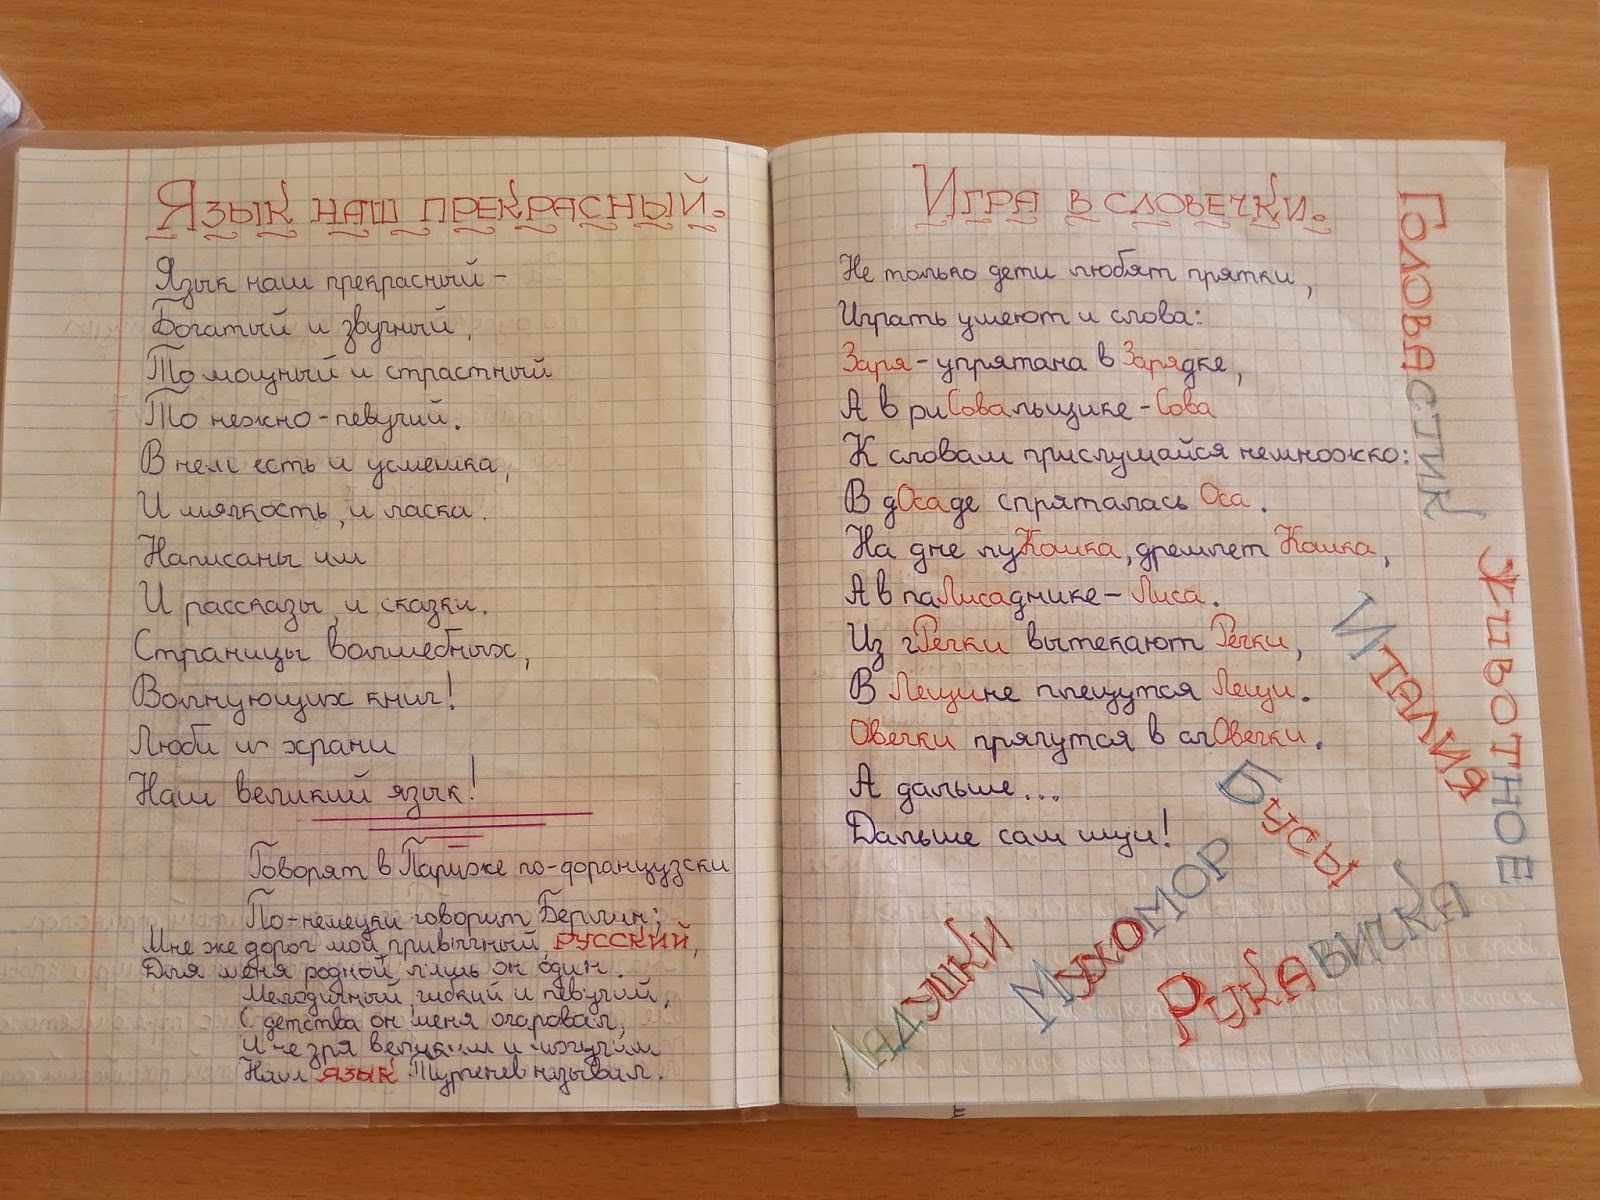 Язык наш прекрасный.
Язык наш прекрасный –
Богатый и звучный,
То мощный и страстный
То нежно-певучий.
В нём есть и усмешка,
И мягкость, и ласка.
Написаны им
И рассказы, и сказки.
Страницы волшебных,
Волнующих книг!
Люби и храни
Наш великий язык!
Говорят в Париже по-французски
По-немецки говорит Берлин;
Мне же дорог мой привычный РУССКИЙ,
Для меня родной лишь он один.
Мелодичный, гибкий и певучий,
С детства он меня очаровал,
И не зря великим и могучим
Наш ЯЗЫК Тургенев называл.
Игра в словечки.
Не только дети любят прятки,
Играть умеют и слова:
Заря - упрятана в Зарядке,
А в риСовальщике - Сова
К словам прислушайся немножко:
В дОсаде спряталась Оса.
На дне луКошка, дремлет Кошка,
А в паЛисаднике – Лиса.
Из гРечки вытекают Речки,
В Лещине плещутся Лещи.
Овечки прячутся в слОвечки.
А дальше...
Дальше сам ищи!
ГОЛОВАСТИК
ЖИВОТНОЕ
ИТАЛИЯ
БУСЫ
ЛАДУШКИ
МУХОМОР
РУКАВИЧКА